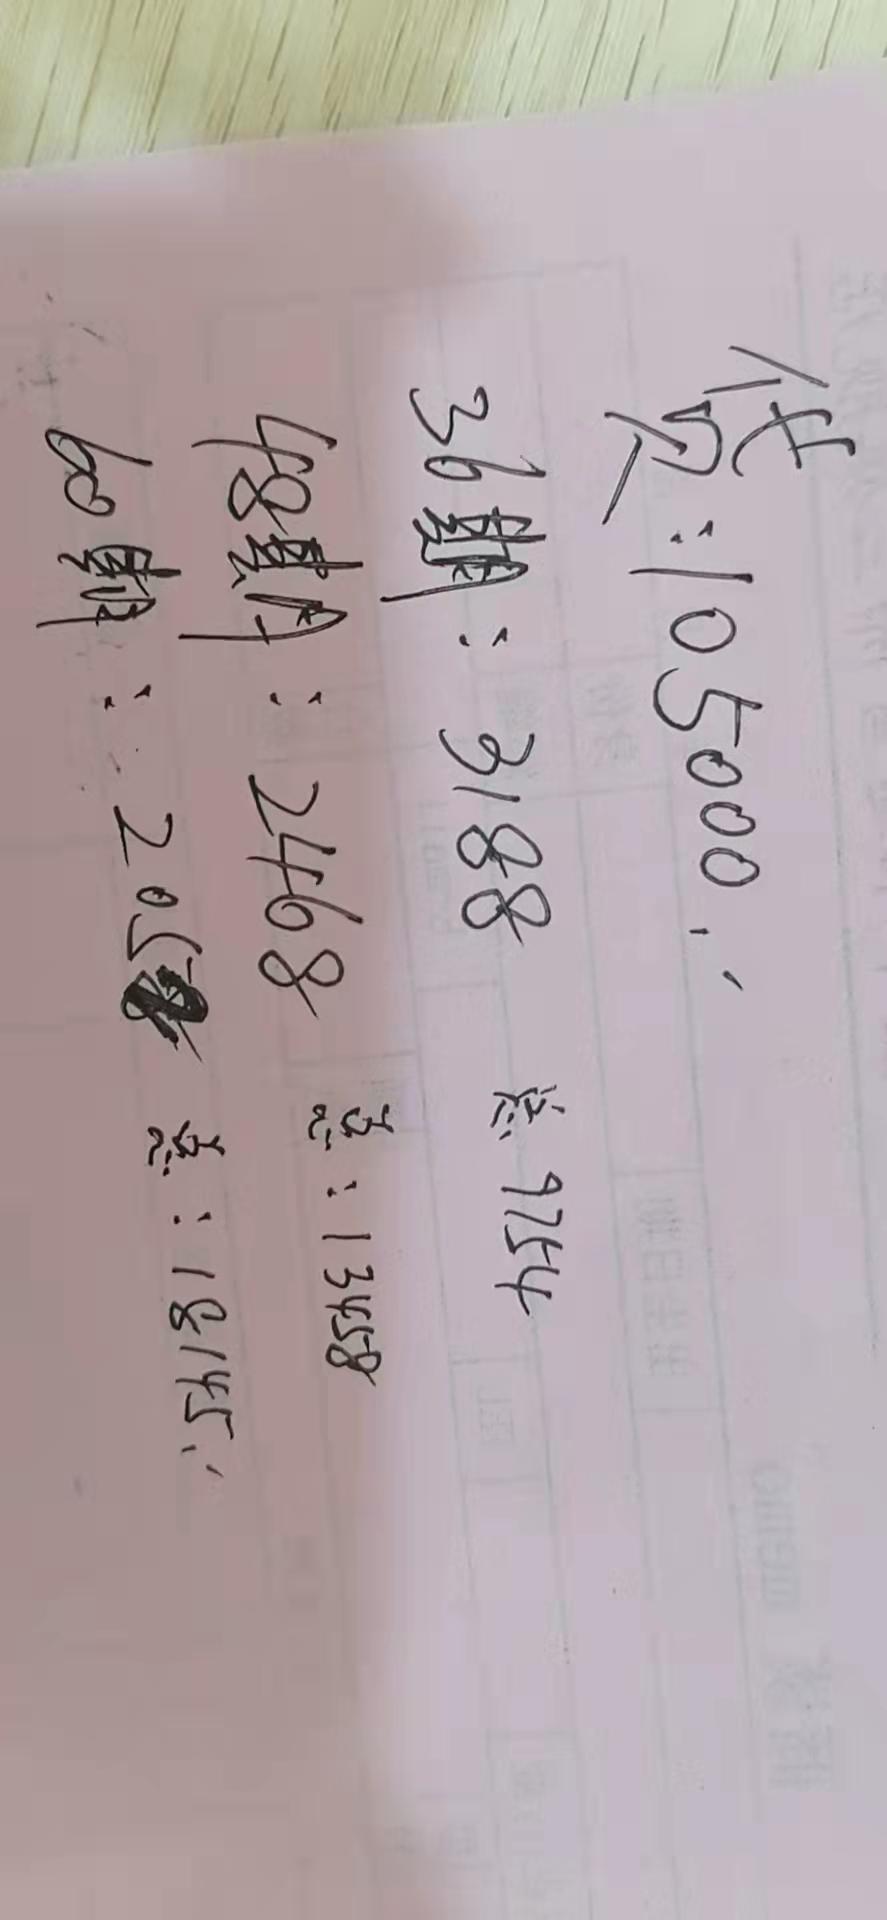 贷:105000.
36期:3188 总9754
48期:2468 总:13458
60期:205 总:18145.